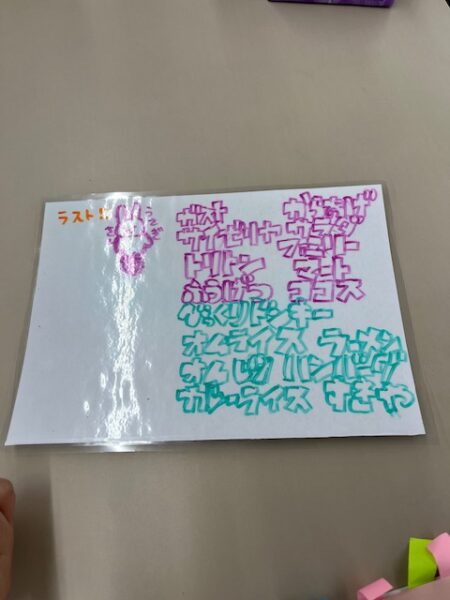 ラスト!!
ガスト
サイゼリヤ
トリトン
ふうげつ
からあげ
サラダ
ファミリー
マート
ココス
びっくりドンキー
オムライス ラーメン
オムレツ ハンバーグ
カレーライス すきや